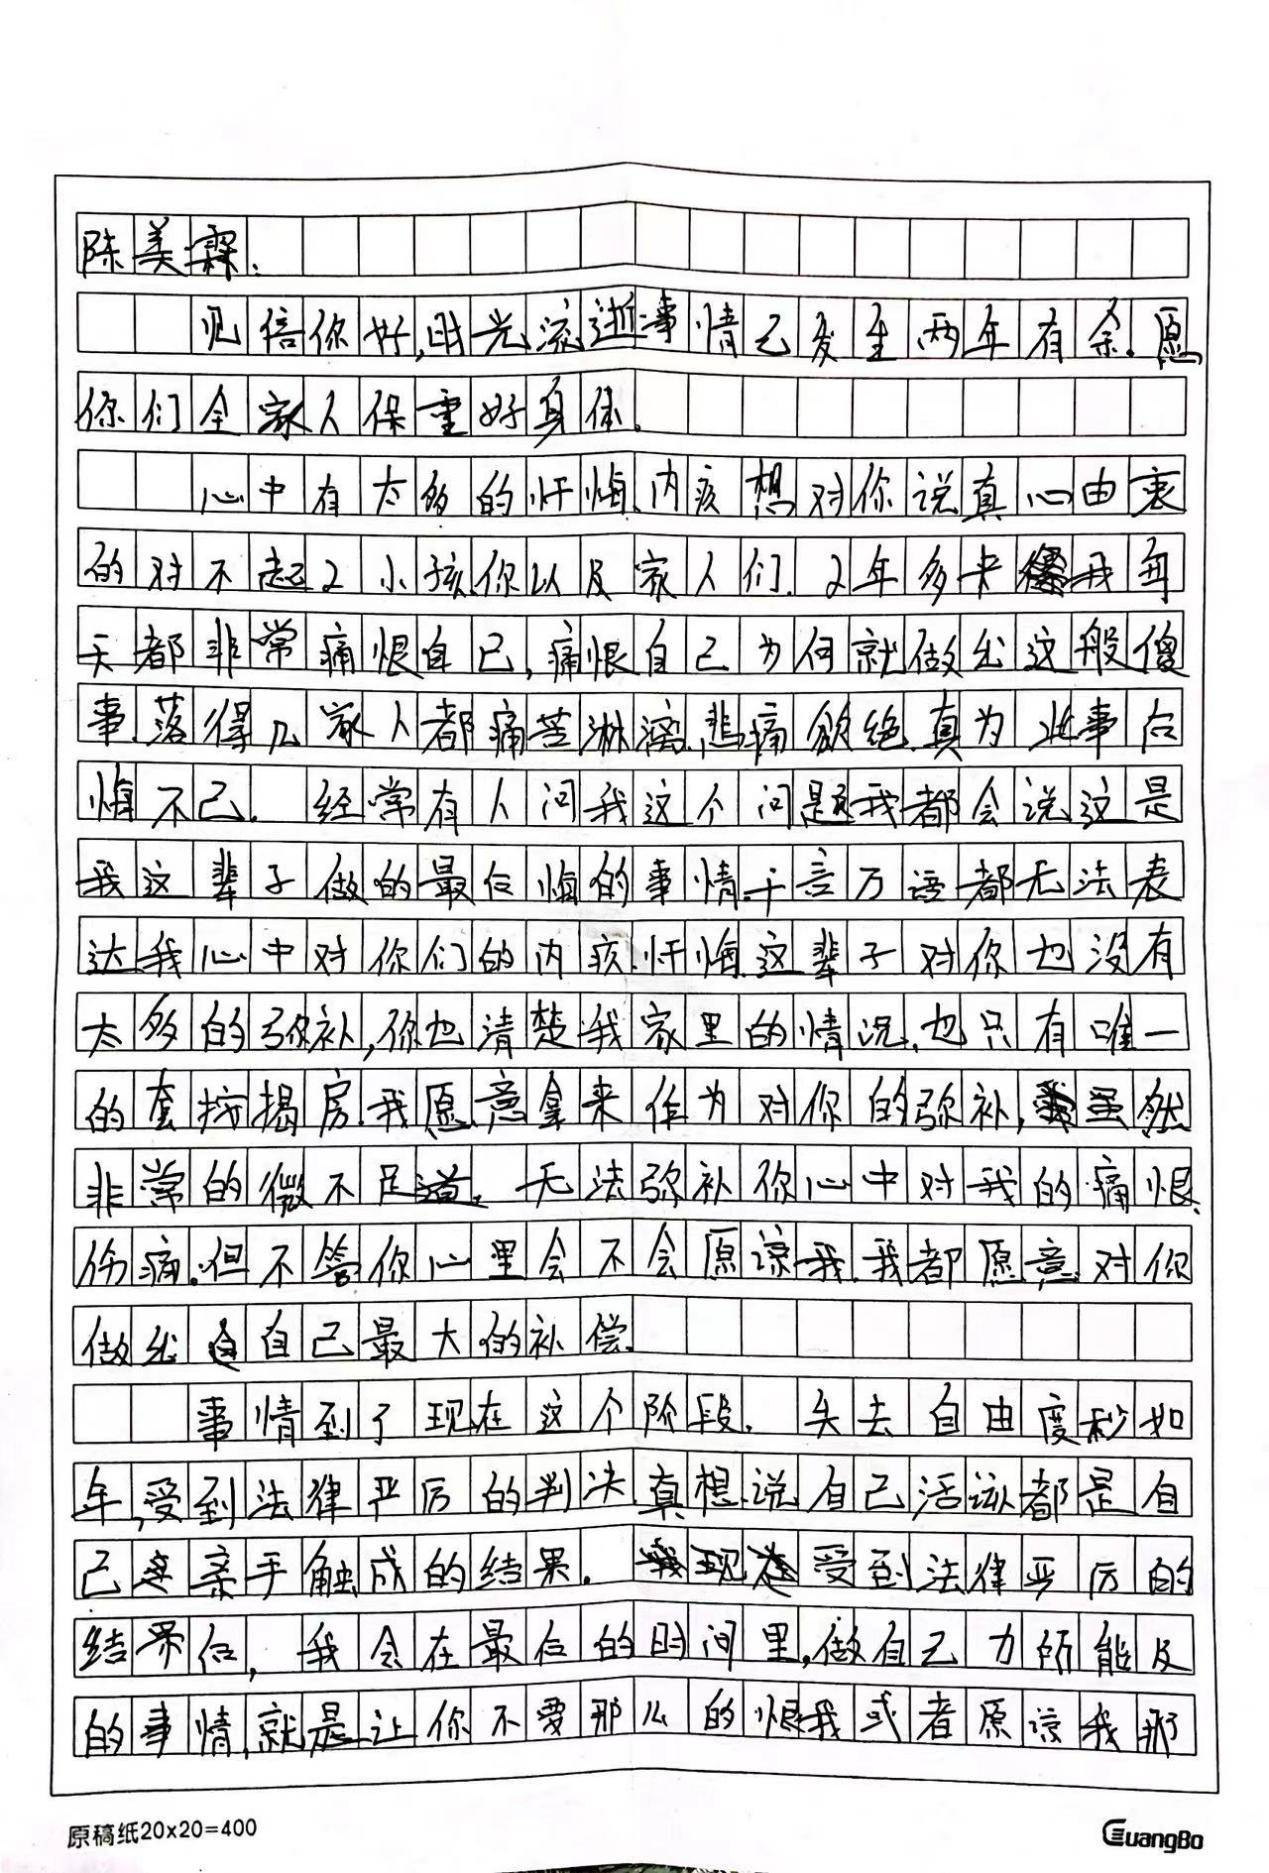 陈美霖:
见信你好,时光流逝事情已发生两年有余.愿
你们全家人保重好身体.
心中有太多的忏悔、内疚想对你说真心由衷
的对不起2小孩、你以及家人们.2年多来我每
天都非常痛恨自己,痛恨自己为何就做出这般傻
事.落得几家人都痛苦淋漓、悲痛欲绝.真为此事后
悔不已.经常有人问我这个问题我都会说这是
我这辈子做的最后悔的事情.千言万语都无法表
达我心中对你们的内疚、忏悔.这辈子对你也没有
太多的弥补,你也清楚我家里的情况.也只有唯一
的套按揭房.我愿意拿来作为对你的弥补,虽然
非常的微不足道.无法弥补你心中对我的痛恨、
伤痛.但不管你心里会不会原谅我.我都愿意对你
做出自己最大的补偿.
事情到了现在这个阶段.失去自由度秒如
年,受到法律严厉的判决.真想说自己活该都是自
己亲手触成的结果.受到法律严厉的
结果后,我会在最后的时间里,做自己力所能及
的事情,就是让你不要那么的恨我或者原谅我那
原稿纸20×20=400
GuangBo